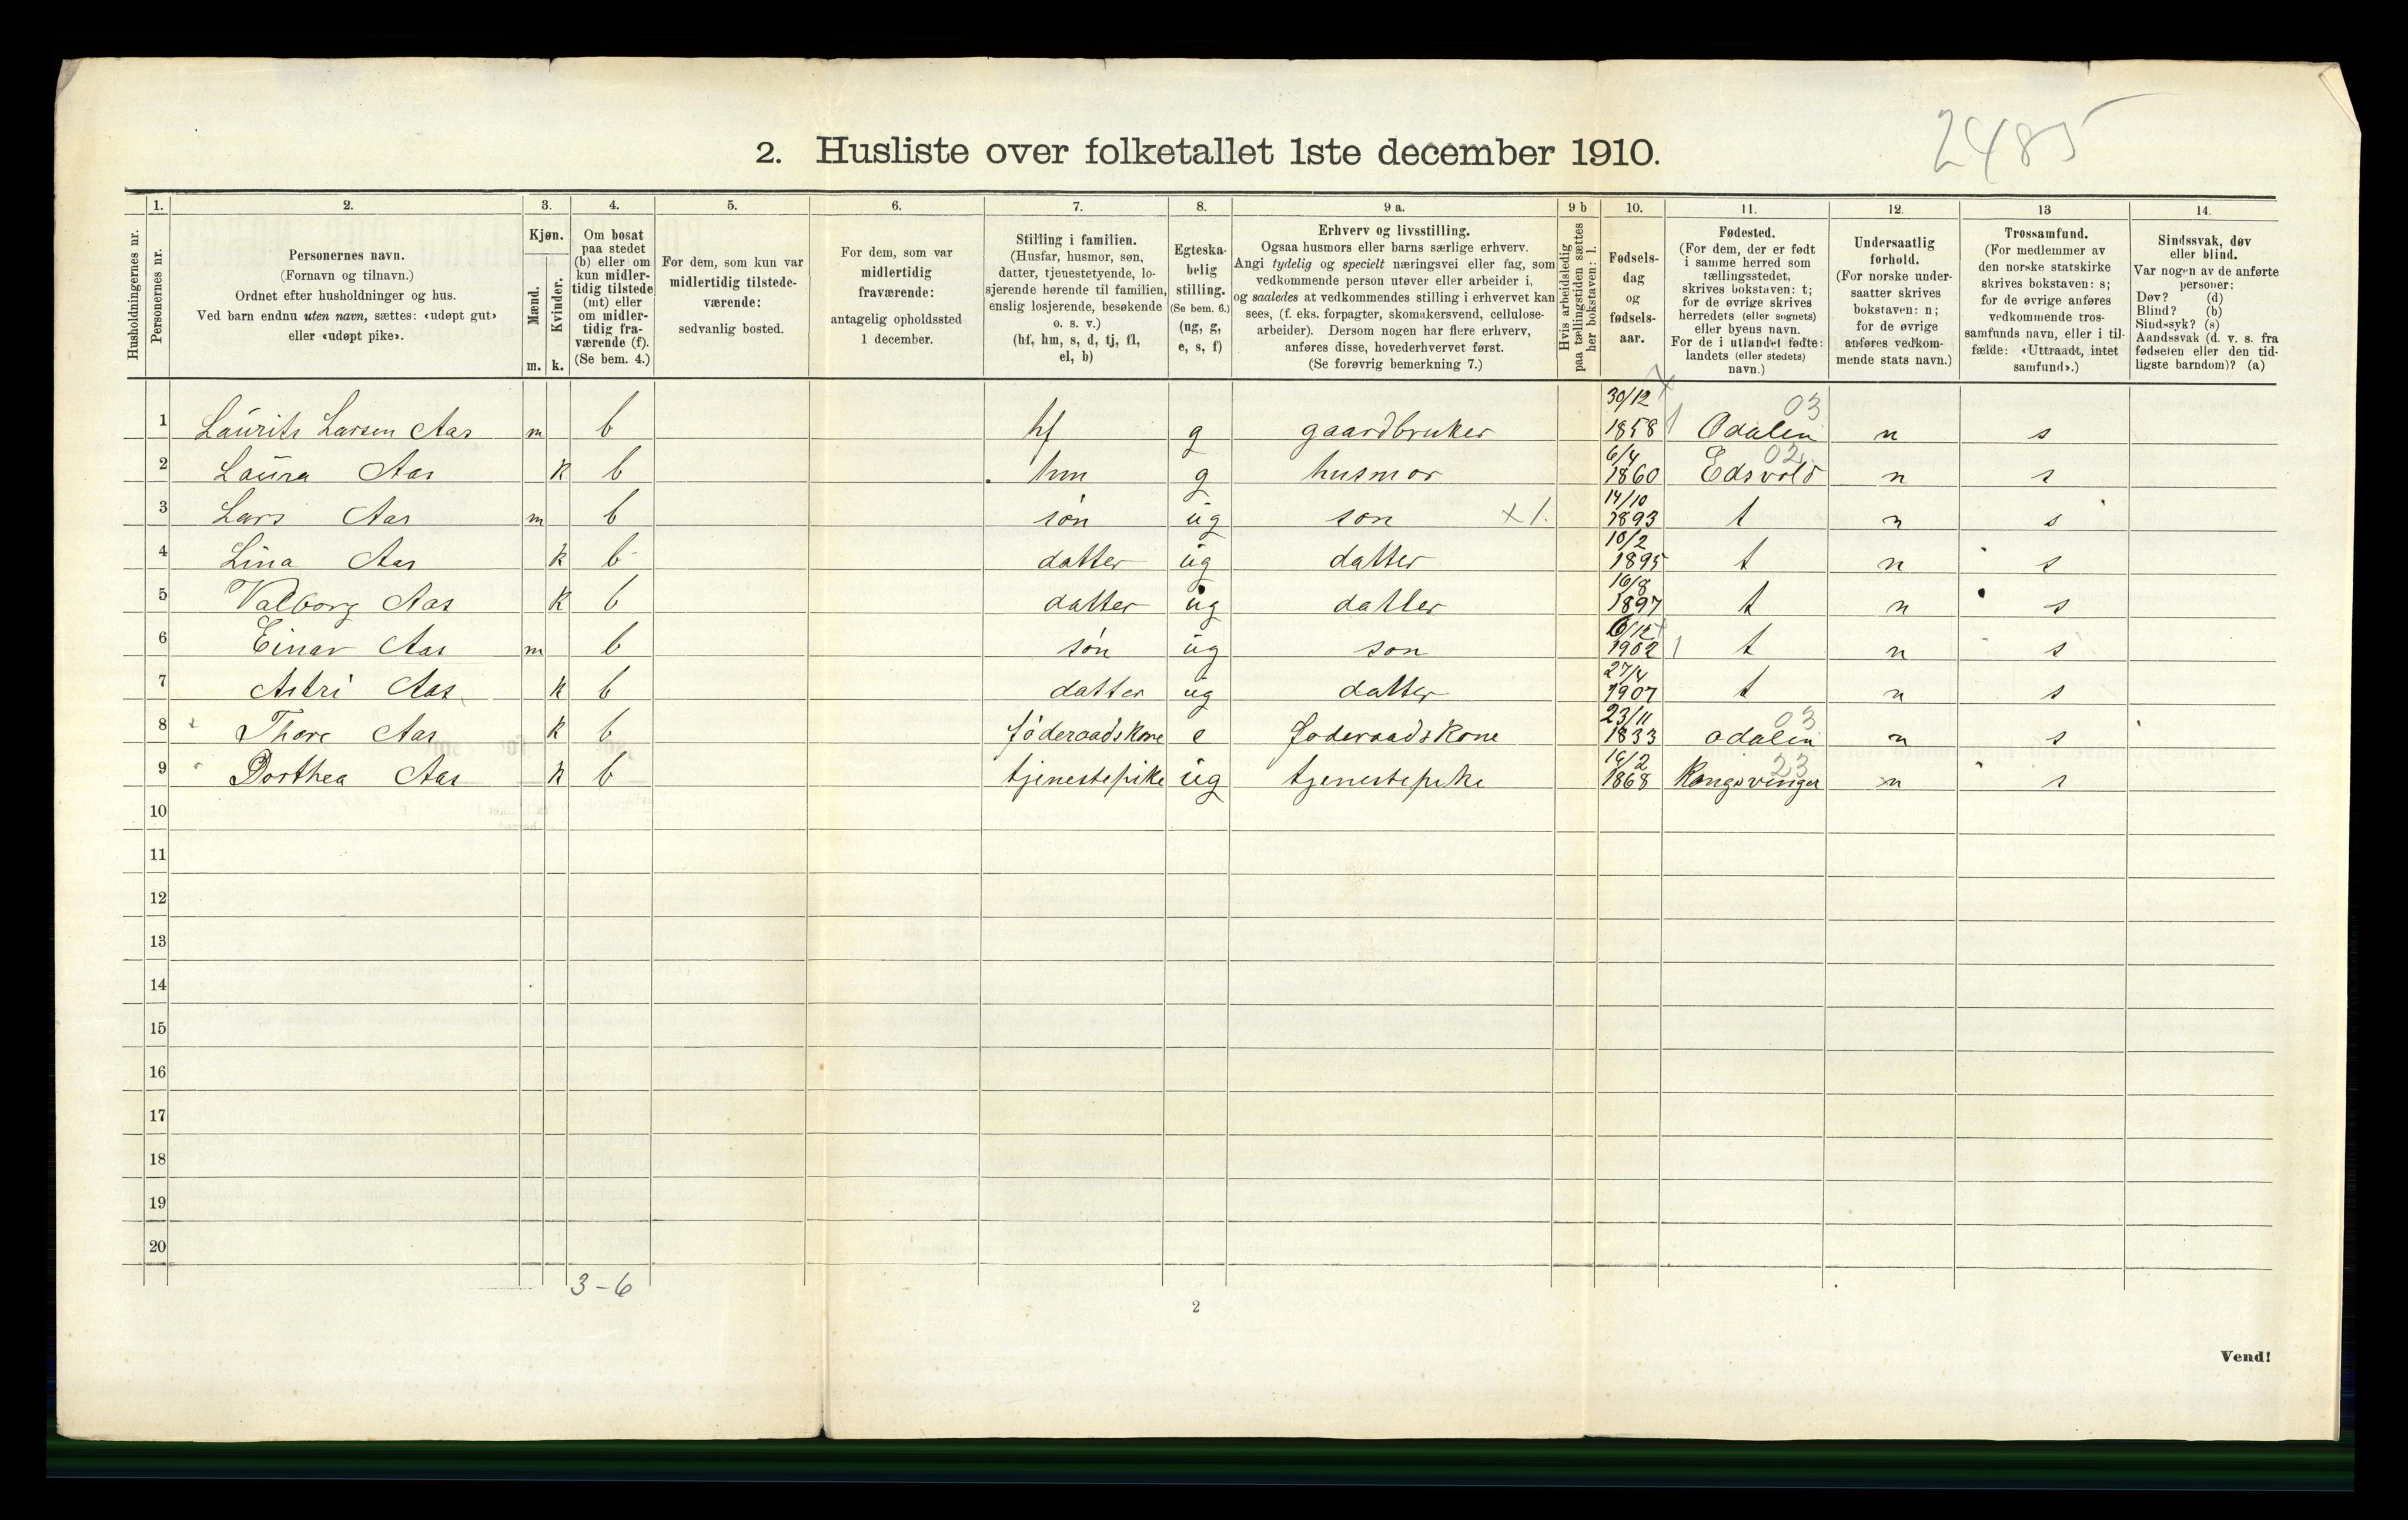 2485
2. Husliste over folketallet 1ste december 1910.
1. 2. 3. 4. 5. 6. 7. 8. 9 a. 9 b 10. 11. 12. 13 14.
Husholdningernes nr.
Personernes nr.
Personernes navn.
(Fornavn og tilnavn.)
Ordnet efter husholdninger og hus.
Ved barn endnu uten navn, sættes: «udøpt gut»
eller «udøpt pike».
Kjøn.
Mænd.
Kvinder.
m. k.
Om bosat
paa stedet
(b) eller om
kun midler-
tidig tilstede
(mt) eller
om midler-
tidig fra-
værende (f).
(Se bem. 4.)
For dem, som kun var
midlertidig tilstede-
værende:
sedvanlig bosted.
For dem, som var
midlertidig
fraværende:
antagelig opholdssted
1 december.
Stilling i familien.
(Husfar, husmor, søn,
datter, tjenestetyende, lo-
sjerende hørende til familien,
enslig losjerende, besøkende
o. s. v.)
(hf, hm, s, d, tj, fl,
el, b)
Egteska-
belig
stilling.
(Se bem. 6.)
(ug, g,
e, s, f)
Erhverv og livsstilling.
Ogsaa husmors eller barns særlige erhverv.
Angi tydelig og specielt næringsvei eller fag, som
vedkommende person utøver eller arbeider i,
og saaledes at vedkommendes stilling i erhvervet kan
sees, (f. eks. forpagter, skomakersvend, cellulose-
arbeider). Dersom nogen har flere erhverv,
anføres disse, hovederhvervet først.
(Se forøvrig bemerkning 7.)
Hvis arbeidsledig
paa tællingstiden sættes
her bokstaven: l.
Fødsels-
dag
og
fødsels-
aar.
Fødested.
(For dem, der er født
i samme herred som
tællingsstedet,
skrives bokstaven: t;
for de øvrige skrives
herredets (eller sognets)
eller byens navn.
For de i utlandet fødte:
landets (eller stedets)
navn.)
Undersaatlig
forhold.
(For norske under-
saatter skrives
bokstaven: n;
for de øvrige
anføres vedkom-
mende stats navn.)
Trossamfund.
(For medlemmer av
den norske statskirke
skrives bokstaven: s;
for de øvrige anføres
vedkommende tros-
samfunds navn, eller i til-
fælde: «Uttraadt, intet
samfund».)
Sindssvak, døv
eller blind.
Var nogen av de anførte
personer:
Døv? (d)
Blind? (b)
Sindssyk? (s)
Aandssvak (d. v. s. fra
fødselen eller den tid-
ligste barndom)? (a)
30/12 03
1 Laurits Larsen Aas m b hf g gaardbruker 1858 Odalen n s
6/4 02
2 Laura Aas k b hm g husmor 1860 Edsvold n s
14/10
3 Lars Aas m b søn ug søn x 1. 1893 t n s
10/2
4 Lina Aas k b datter ug datter 1895 t n s
16/8
5 Valborg Aas k b datter ug datter 1897 t n s
6/12
6 Einar Aas m b søn ug søn 1902 t n s
27/4
7 Astri Aas k b datter ug datter 1907 t n s
23/11 03
8 Thore Aas k b føderaadskone e føderaadskone 1833 odalen n s
16/2 23
9 Dorthea Aas k b tjenestepike ug tjenestepike 1868 Kongsvinger n s
10
11
12
13
14
15
16
17
18
19
20
3-6
2
Vend!